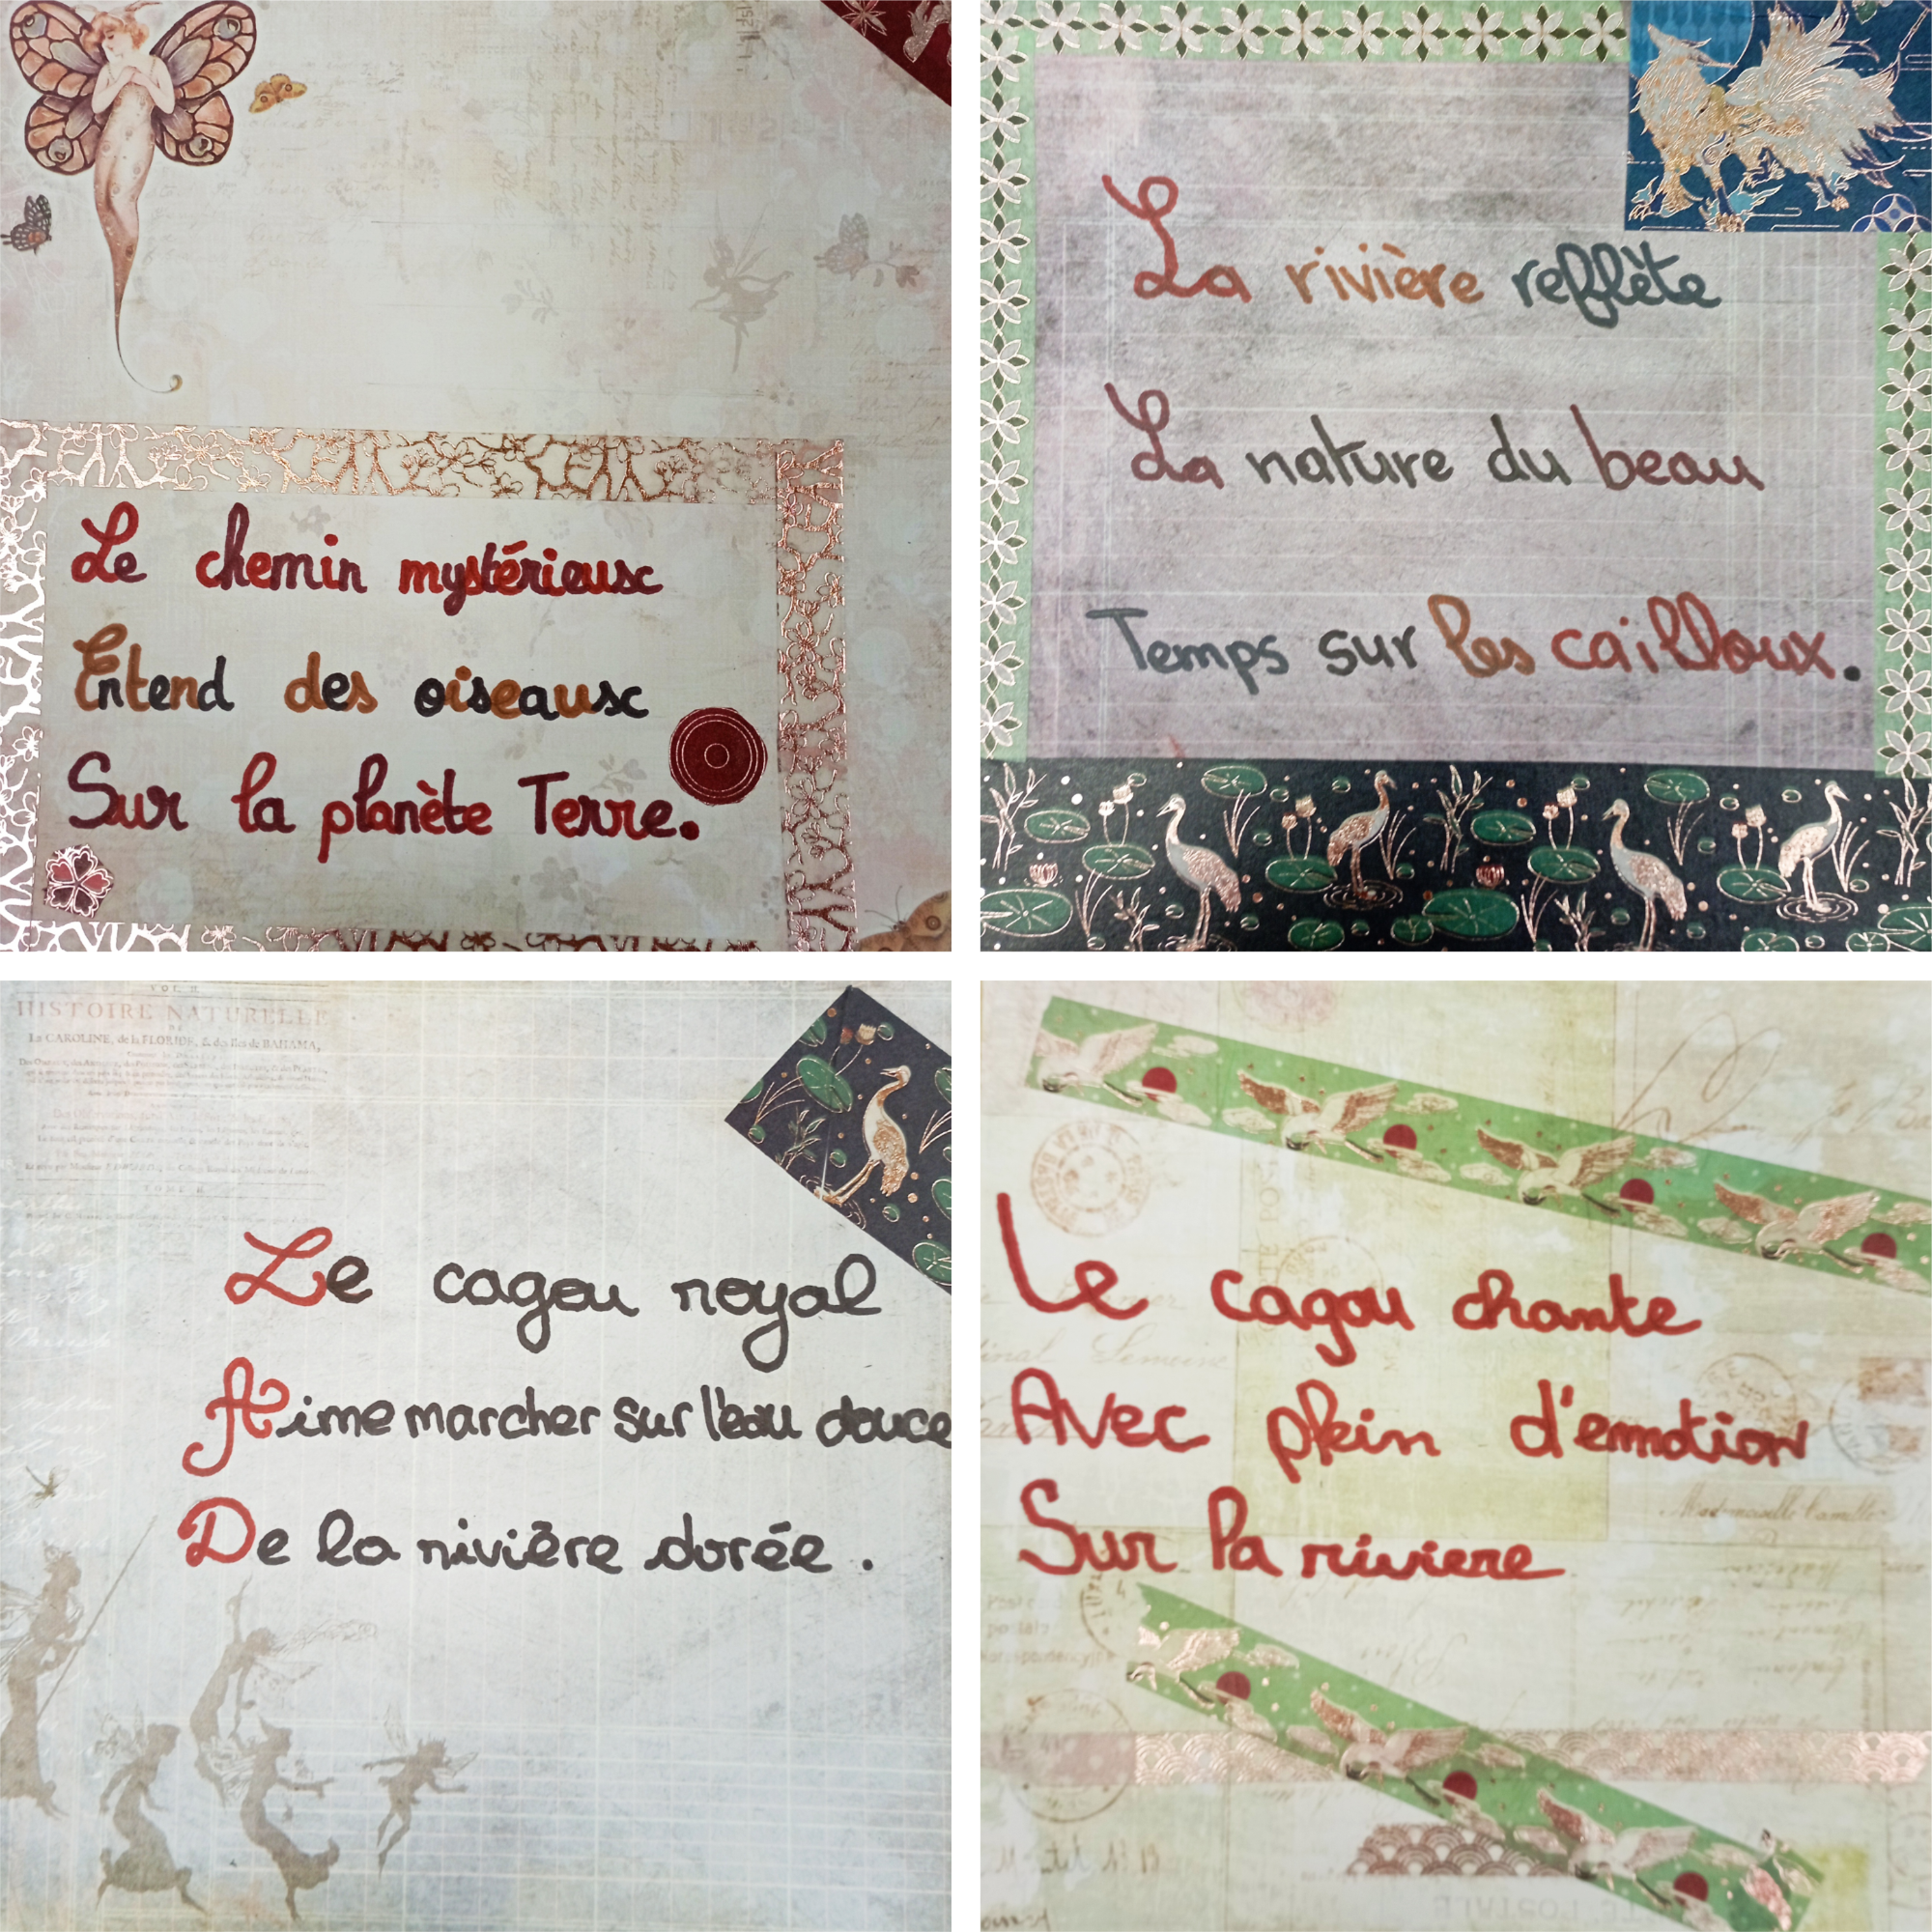 Le chemin mystérieux
Entend des oiseaux
Sur la planète Terre.
La rivière reflète
La nature du beau
Temps sur les cailloux.
HISTOIRE NATURELLE
La CAROLINE, de la FLORIDE, & des Isles de BAHAMA,
Le cagou royal
Aime marcher sur l'eau douce
De la rivière dorée.
Le cagou chante
Avec plein d'emotion
Sur la riviere